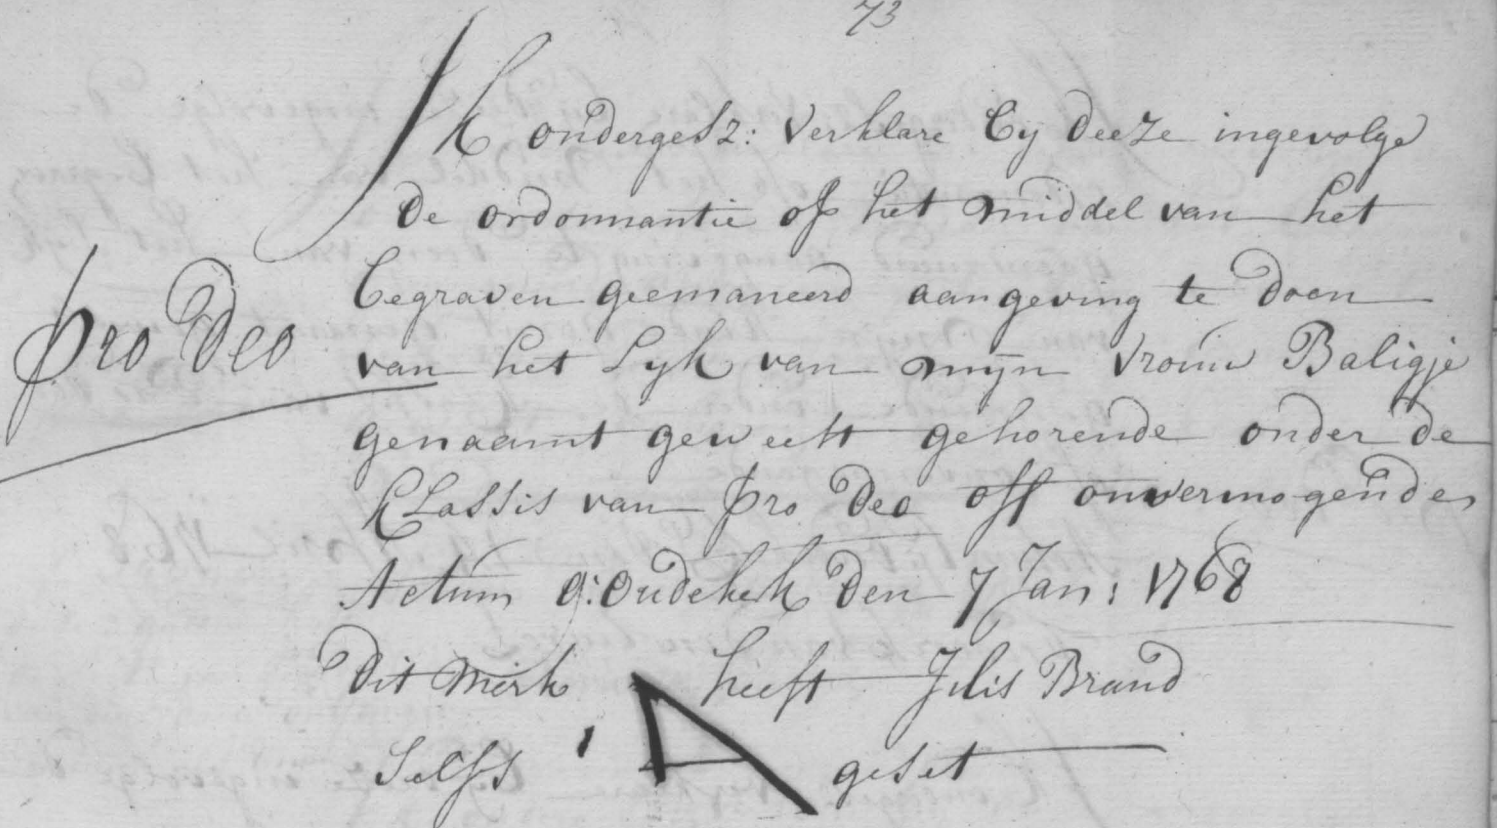 73
Ik ondergesz: verklare by deeze ingevolge
de ordonnantie op het middel van het
begraven geemaneerd aangeving te doen
pro Deo
van het Lyk van mijn vrouw Baligje
genaamt geweest gehorende onder de
Classis van pro Deo off onvermogende
Actum O: Oudekerk den 7 Jan: 1768
Dit merk heeft Jilis Brand
Selfs A geset